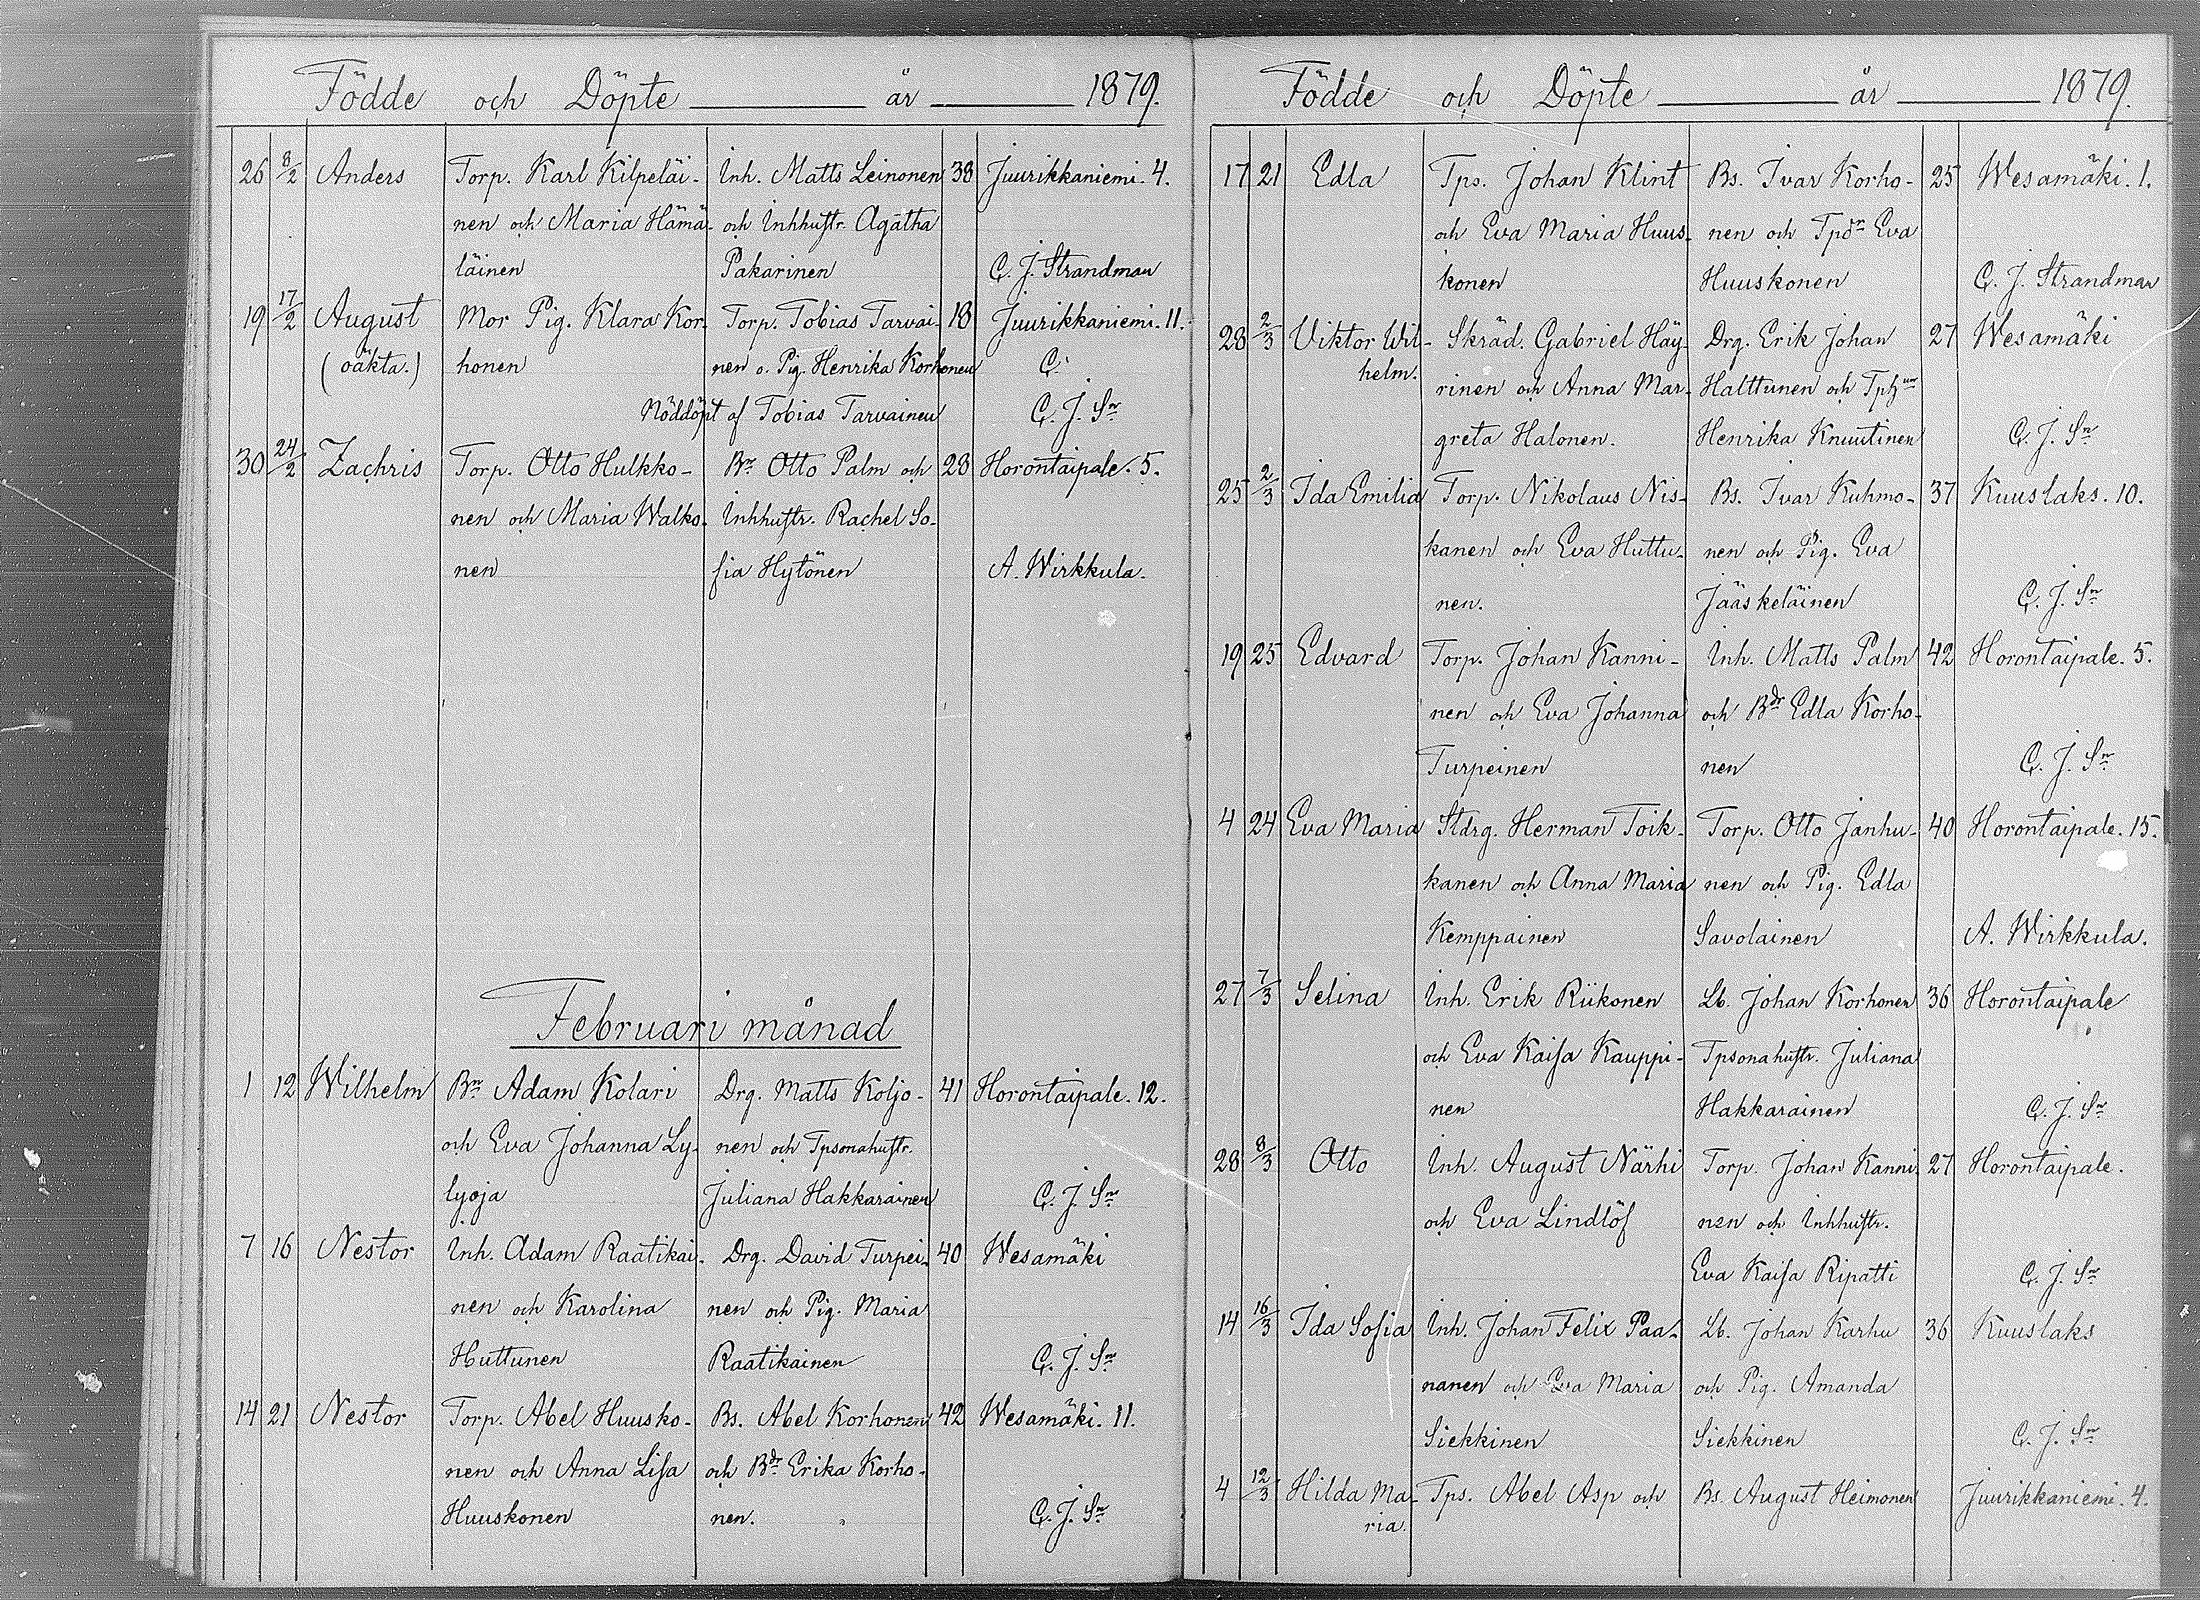 Födde och Döpte år 1879.
26 8/2 Anders Torp. Karl Kilpeläi- Inh. Matts Leinonen 38 Juurikkaniemi. 4.
nen och Maria Hämä- och Inhhustr. Agatha
läinen Pakarinen C. J. Strandman
19 17/2 August Mor Pig. Klara Kor- Torp. Tobias Tarvai- 18 Juurikkaniemi. 11.
(oäkta.) honen nen o. Pig. Henrika Korhonen C.
Nöddöpt af Tobias Tarvainen C. J. Sn
30 24/2 Zachris Torp. Otto Hulkko- Bn Otto Palm och 28 Horontaipale. 5.
nen och Maria Walko- Inhhustr. Rachel So-
nen fia Hytönen A. Wirkkula.
Februari månad
1 12 Wilhelm Bn Adam Kolari Drg. Matts Koljo- 41 Horontaipale. 12.
och Eva Johanna Ly- nen och Tpsonahustr.
lyoja Juliana Hakkarainen C. J. Sn
7 16 Nestor Inh. Adam Raatikai- Drg. David Turpei- 40 Wesamäki
nen och Karolina nen och Pig. Maria
Huttunen Raatikainen C. J. Sn
14 21 Nestor Torp. Abel Huusko- Bs. Abel Korhonen 42 Wesamäki. 11.
nen och Anna Lisa och Bdr Erika Korho-
Huuskonen nen. C. J. Sn
Födde och Döpte år 1879.
17 21 Edla Tps. Johan Klint Bs. Ivar Korho- 25 Wesamäki. 1.
och Eva Maria Huus- nen och Tpdr Eva
konen Huuskonen C. J. Strandman
28 2/3 Viktor Wil- Skräd. Gabriel Häy- Drg. Erik Johan 27 Wesamäki
helm. rinen och Anna Mar- Halttunen och
greta Halonen. Henrika Knuutinen C. J. Sn
25 2/3 Ida Emilia Torp. Nikolaus Nis- Bs. Ivar Kuhmo- 37 Kuuslaks. 10.
kanen och Eva Huttu- nen och Pig. Eva
nen. Jääskeläinen C. J. Sn
19 25 Edvard Torp. Johan Kanni- Inh. Matts Palm 42 Horontaipale. 5.
nen och Eva Johanna och Bdr Edla Korho-
Turpeinen nen C. J. Sn
4 24 Eva Maria Stdrg. Herman Toik- Torp. Otto Janhu- 40 Horontaipale. 15.
kanen och Anna Maria nen och Pig. Edla
Kemppainen Savolainen A. Wirkkula.
27 7/3 Selina Inh. Erik Riikonen Lb. Johan Korhonen 36 Horontaipale
och Eva Kaisa Kauppi- Tpsonahustr. Juliana
nen Hakkarainen C. J. Sn
28 8/3 Otto Inh. August Närhi Torp. Johan Kanni- 27 Horontaipale.
och Eva Lindlöf nen och Inhhustr.
Eva Kaisa Ripatti C. J. Sn
14 16/3 Ida Sofia Inh. Johan Felix Paa- Lb. Johan Karhu 36 Kuuslaks
nanen och Eva Maria och Pig. Amanda
Siekkinen Siekkinen C. J. Sn
4 12/3 Hilda Ma- Tps. Abel Asp och Bs. August Heimonen Juurikkaniemi. 4.
ria.